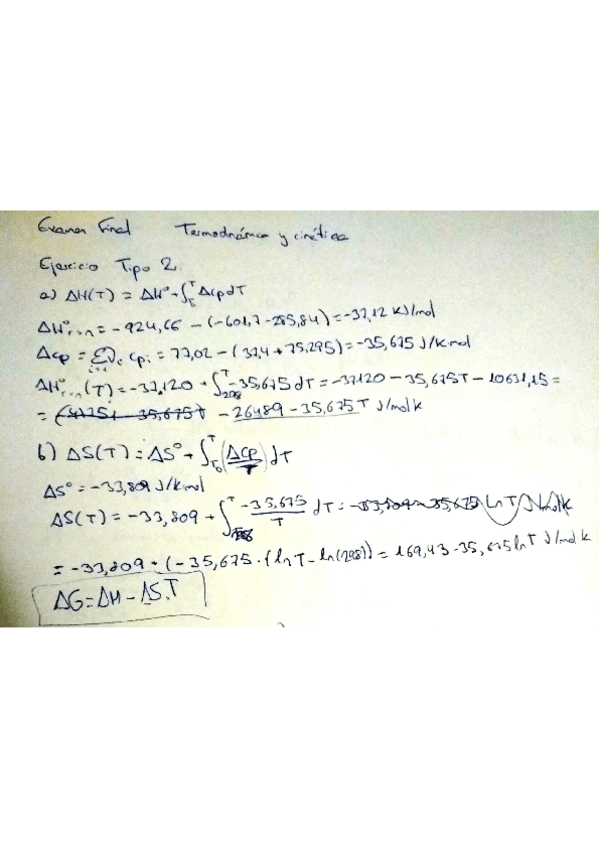 Examen Final Termodnámica y cinética
Ejercicio Tipo 2.
a) ΔH(T) = ΔH° + ∫_{T₀}^{T} ΔcpdT
ΔH°rxn = -924,66 - (-601,7-285,84) = -37,12 kJ/mol
Δcp = Σνᵢ cpᵢ = 77,02 - (37,4 + 75,295) = -35,675 J/kmol
ΔH°rxn (T) = -37,120 + ∫_{298}^{T} -35,675 dT = -37120 - 35,675T - 10631,15 =
= - 26489 - 35,675 T J/molk
b) ΔS(T) = ΔS° + ∫_{T₀}^{T} (Δcp/T) dT
ΔS° = -33,809 J/kmol
ΔS(T) = -33,809 + ∫^{T} -35,675/T dT = -33,809 - 35,675 ln T J/molk
= -33,809 + (-35,675 · (ln T - ln(298)) = 169,43 - 35,675 ln T J/molk
ΔG = ΔH - ΔS.T